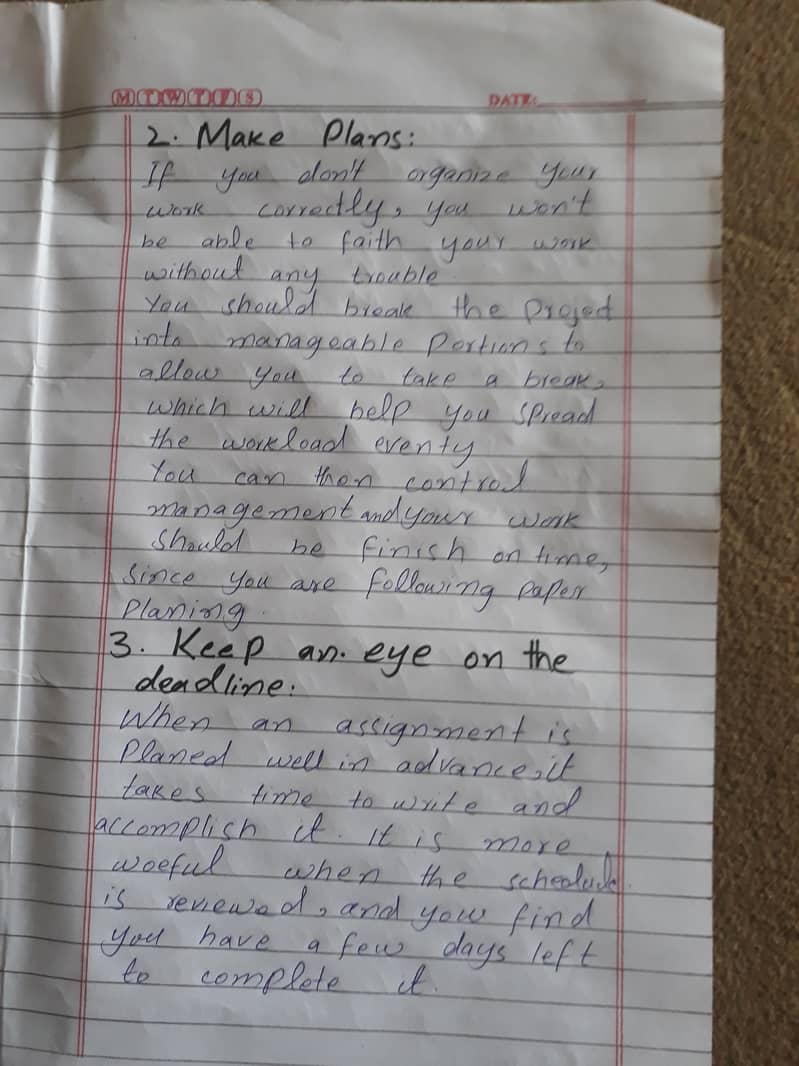 M T W T F S DATE:
2. Make Plans:
If you don't organize your
work correctly, you won't
be able to faith your work
without any trouble.
You should break the Project
into manageable Portions to
allow you to take a break,
which will help you spread
the workload eventy
You can then control
management and your work
should be finish on time,
Since you are following paper
Planing.
3. Keep an. eye on the
deadline:
When an assignment is
Planed well in advance, it
takes time to write and
accomplish it. It is more
woeful when the schedule
is reviewed, and you find
you have a few days left
to complete it.